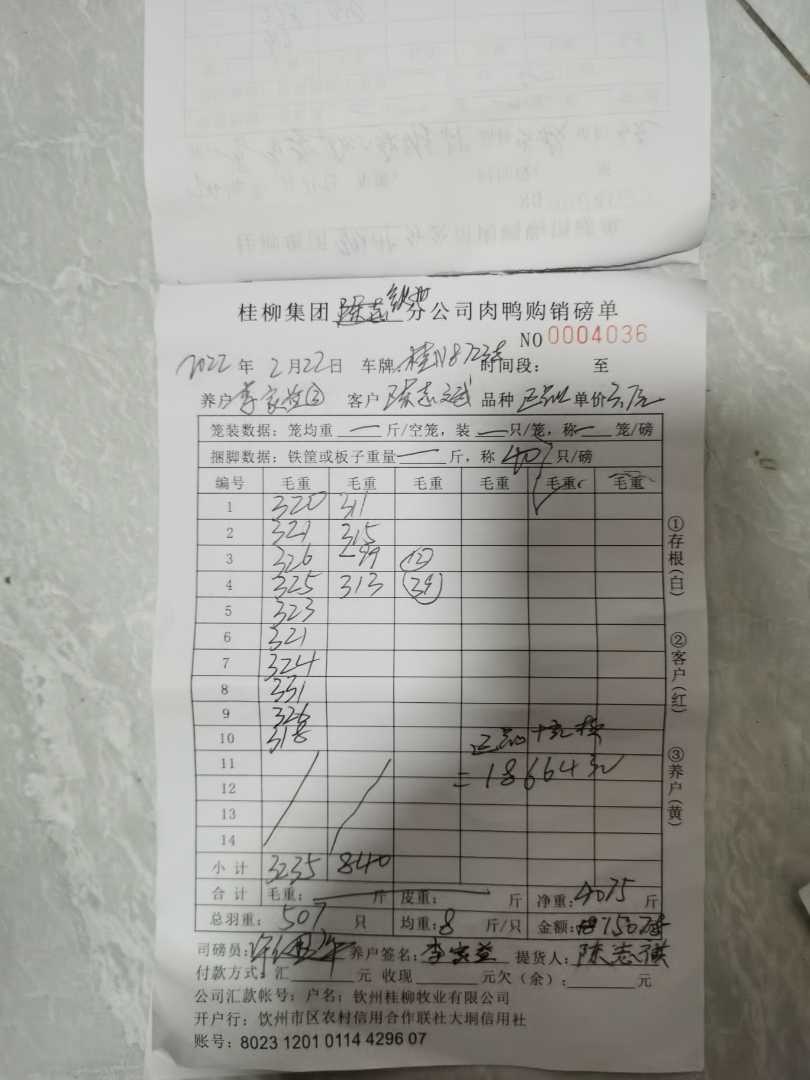 桂柳集团 陈志 钦州 分公司肉鸭购销磅单
NO 0004036
2022 年 2 月 22 日 车牌: 桂N8723 时间段: 至
养户 李家益 客户 陈志斌 品种 正品 单价
笼装数据: 笼均重 一 斤/空笼, 装 一 只/笼, 称 一 笼/磅
捆脚数据: 铁筐或板子重量 一 斤, 称 40 只/磅
编号 毛重 毛重 毛重 毛重 毛重 毛重
1 320 311
2 321 315
3 326 -99 (12)
4 325 313 (39)
5 323
6 321
7 324
8 331
9 326
10 318 正品
= 18664元
11
12
13
14
小计 3235 840
合计 毛重: 斤 皮重: 斤 净重: 4075 斤
总羽重: 507 只 均重: 8 斤/只 金额:
司磅员: 养户签名: 李家益 提货人: 陈志斌
付款方式: 汇 元 收现 元欠(余): 元
公司汇款帐号: 户名: 钦州桂柳牧业有限公司
开户行: 饮州市区农村信用合作联社大垌信用社
账号: 8023 1201 0114 4296 07
①存根(白)
②客户(红)
③养户(黄)